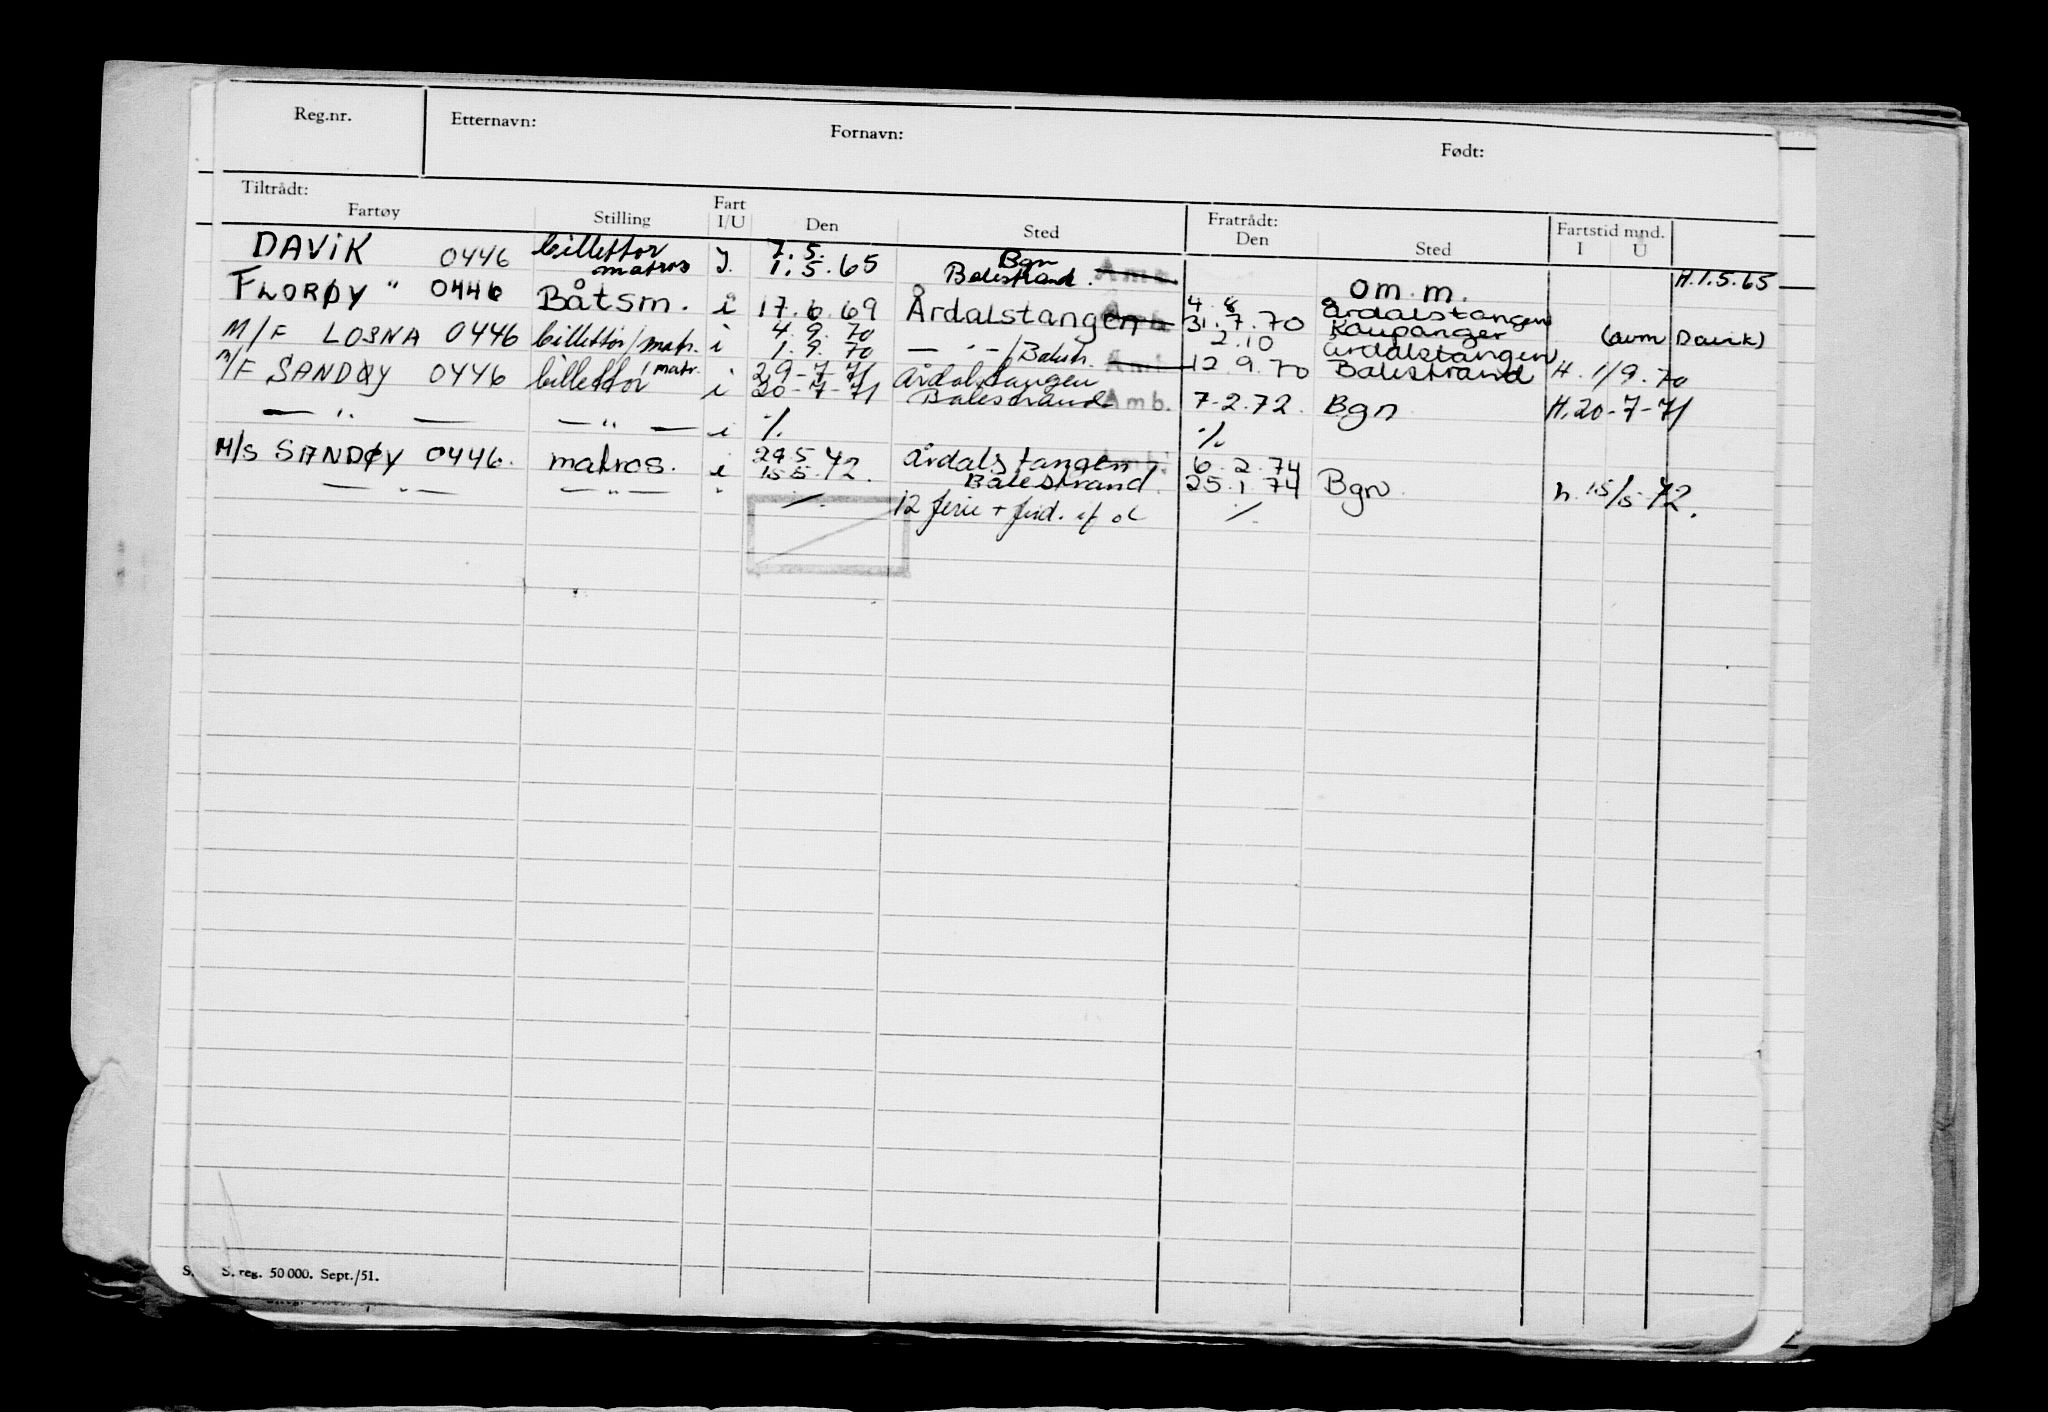 Reg.nr. Etternavn: Fornavn: Født:
Tiltrådt: Fratrådt:
Fartøy Stilling Fart I/U Den Sted Den Sted Fartstid mnd. I U
DAViK 0446 billettør 7.5. Bgn
matros J. 1.5.65 Balestrand. om.m. H.1.5.65
FLORØY " 0446 Båtsm. i 17.6.69 Årdalstangen 4.8 Årdalstangen
31.7.70 Kaupanger (avm Davik)
M/F LOSNA 0446 billettør/matr. i 4.9.70 2.10 Årdalstangen
1.9.70 — " — /Balestr. 12.9.70 Balestrand H. 1/9.70
M/F SANDØY 0446 billettør /matr. i 29-7-71 Årdalstangen
20-7-71 Balestrand Amb. 7-2.72. Bgn H.20-7-71
— " — — " — i ./. ./.
M/S SANDØY 0446. matros. i 29 5 72 Årdalstangen 6.2.74
15 5.72. Balestrand. 25.1.74 Bgn. h. 15/5-72.
— " — — " — " ./. 12 ferie + ./.
S. reg. 50 000. Sept./51.